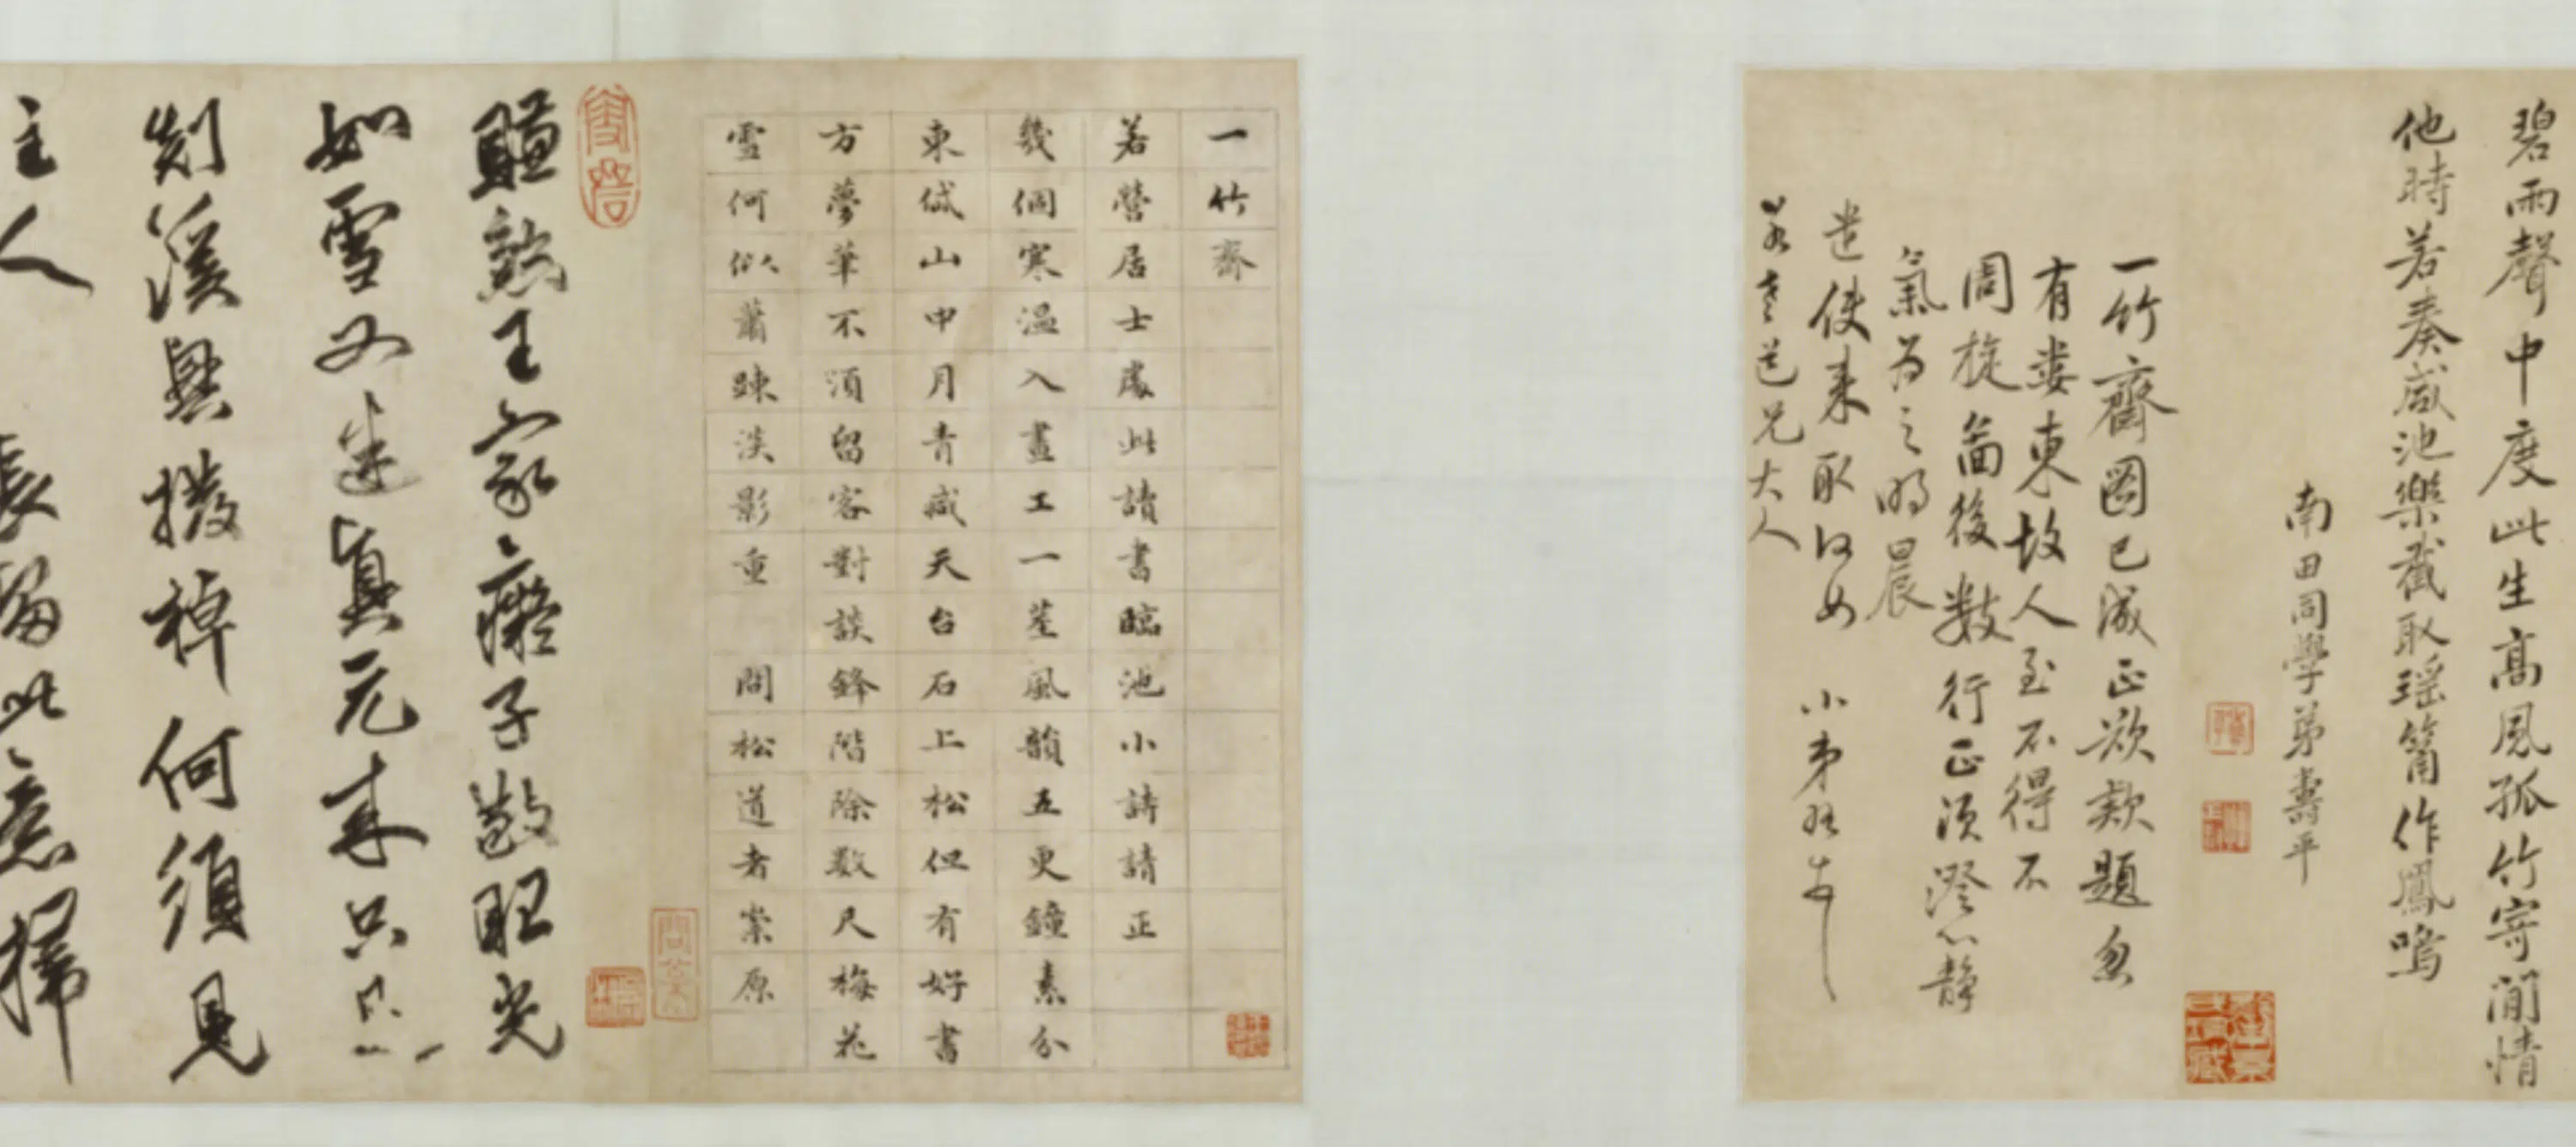 碧雨聲中度此生高風孤竹寄閒情
他時若奏咸池樂截取瑶筩作鳳鳴
南田同學弟壽平
一竹齋圖已成正欲款題忽
有婁東故人至不得不
周旋畣後數行正須澄心静
氣為之明晨
遣使来取何如 小弟
道兄大人
一竹齋
若營居士處此讀書臨池小詩請正
幾個寒温入畫工一茎風韻五更鐘素分
東岱山中月青咸天台石上松但有好書
方夢筆不須留客對談鋒階除数尺梅花
雪何似蕭踈淡影重 問松道者崇原
王家癡子敵眼光
如雪又逢真元来只
剡溪興撥棹何須見
主人 長留此意掃